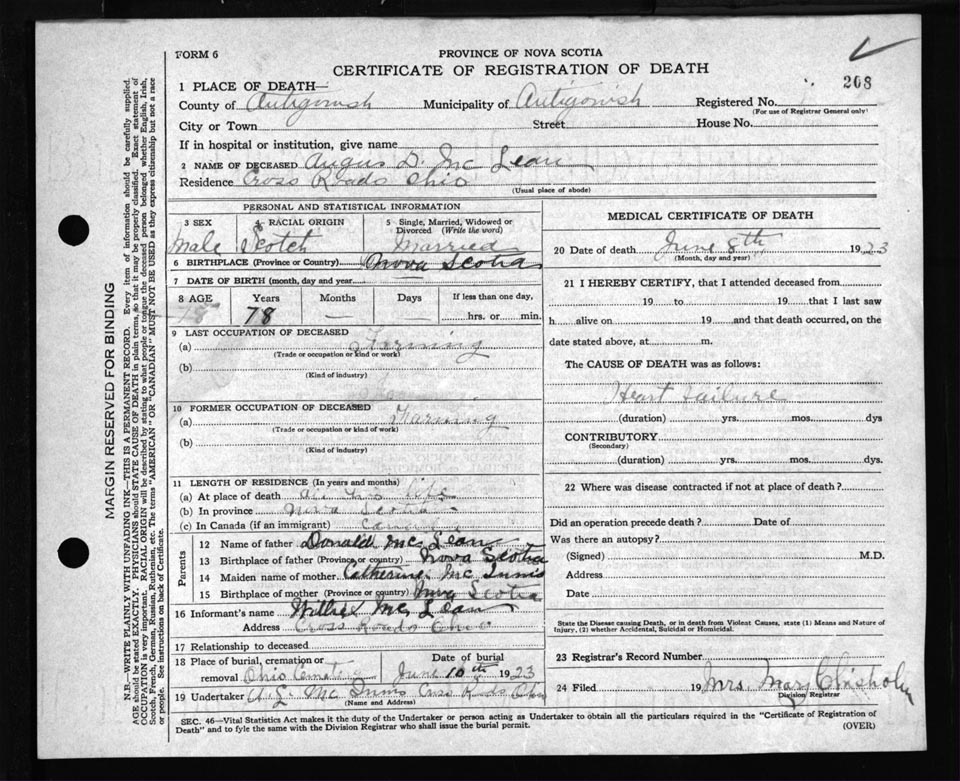 FORM 6
PROVINCE OF NOVA SCOTIA
CERTIFICATE OF REGISTRATION OF DEATH
208
1 PLACE OF DEATH—
County of Antigonish Municipality of Antigonish Registered No.
(For use of Registrar General only)
City or Town Street House No.
If in hospital or institution, give name
2 NAME OF DECEASED Angus D. Mc Lean
Residence Cross Roads Ohio
(Usual place of abode)
PERSONAL AND STATISTICAL INFORMATION
3 SEX 4 RACIAL ORIGIN 5 Single, Married, Widowed or Divorced (Write the word)
Male Scotch Married
6 BIRTHPLACE (Province or Country) Nova Scotia
7 DATE OF BIRTH (month, day and year)
8 AGE Years Months Days If less than one day,
78 — — hrs. or min.
9 LAST OCCUPATION OF DECEASED
(a) Farming
(Trade or occupation or kind or work)
(b)
(Kind of industry)
10 FORMER OCCUPATION OF DECEASED
(a) Farming
(Trade or occupation or kind of work)
(b)
(Kind of industry)
11 LENGTH OF RESIDENCE (In years and months)
(a) At place of death all his life
(b) In province Nova Scotia
(c) In Canada (if an immigrant)
Parents
12 Name of father Donald Mc Lean
13 Birthplace of father (Province or country) Nova Scotia
14 Maiden name of mother Catherine Mc Innis
15 Birthplace of mother (Province or country) Nova Scotia
16 Informant's name Willie Mc Lean
Address Cross Roads Ohio
17 Relationship to deceased
18 Place of burial, cremation or removal Ohio Date of burial June 10th 1923
19 Undertaker A. L. Mc Innis Cross Roads Ohio
(Name and Address)
MEDICAL CERTIFICATE OF DEATH
20 Date of death June 8th, 1923
(Month, day and year)
21 I HEREBY CERTIFY, that I attended deceased from
19 to 19 that I last saw
h alive on 19 and that death occurred, on the
date stated above, at m.
The CAUSE OF DEATH was as follows:
Heart failure
(duration) yrs. mos. dys
CONTRIBUTORY
(Secondary)
(duration) yrs. mos. dys.
22 Where was disease contracted if not at place of death?
Did an operation precede death? Date of
Was there an autopsy?
(Signed) M.D.
Address
Date
State the Disease causing Death, or in death from Violent Causes, state (1) Means and Nature of
Injury, (2) whether Accidental, Suicidal or Homicidal.
23 Registrar's Record Number
24 Filed 19 Mrs. Mary Chisholm
Division Registrar
SEC. 46—Vital Statistics Act makes it the duty of the Undertaker or person acting as Undertaker to obtain all the particulars required in the "Certificate of Registration of
Death" and to fyle the same with the Division Registrar who shall issue the burial permit. (OVER)
MARGIN RESERVED FOR BINDING
N.B.—WRITE PLAINLY WITH UNFADING INK—THIS IS A PERMANENT RECORD. Every item of information should be carefully supplied.
AGE should be stated EXACTLY. PHYSICIANS should STATE CAUSE OF DEATH in plain terms, so that it may be properly classified. Exact statement of
OCCUPATION is very important. RACIAL ORIGIN will be described by stating to what people or tongue the deceased person belonged, whether English, Irish,
Scotch, French, German, Russian, Ruthenian, etc. The terms "AMERICAN" OR "CANADIAN" MUST NOT BE USED as they express citizenship but not a race
or people. See instructions on back of Certificate.